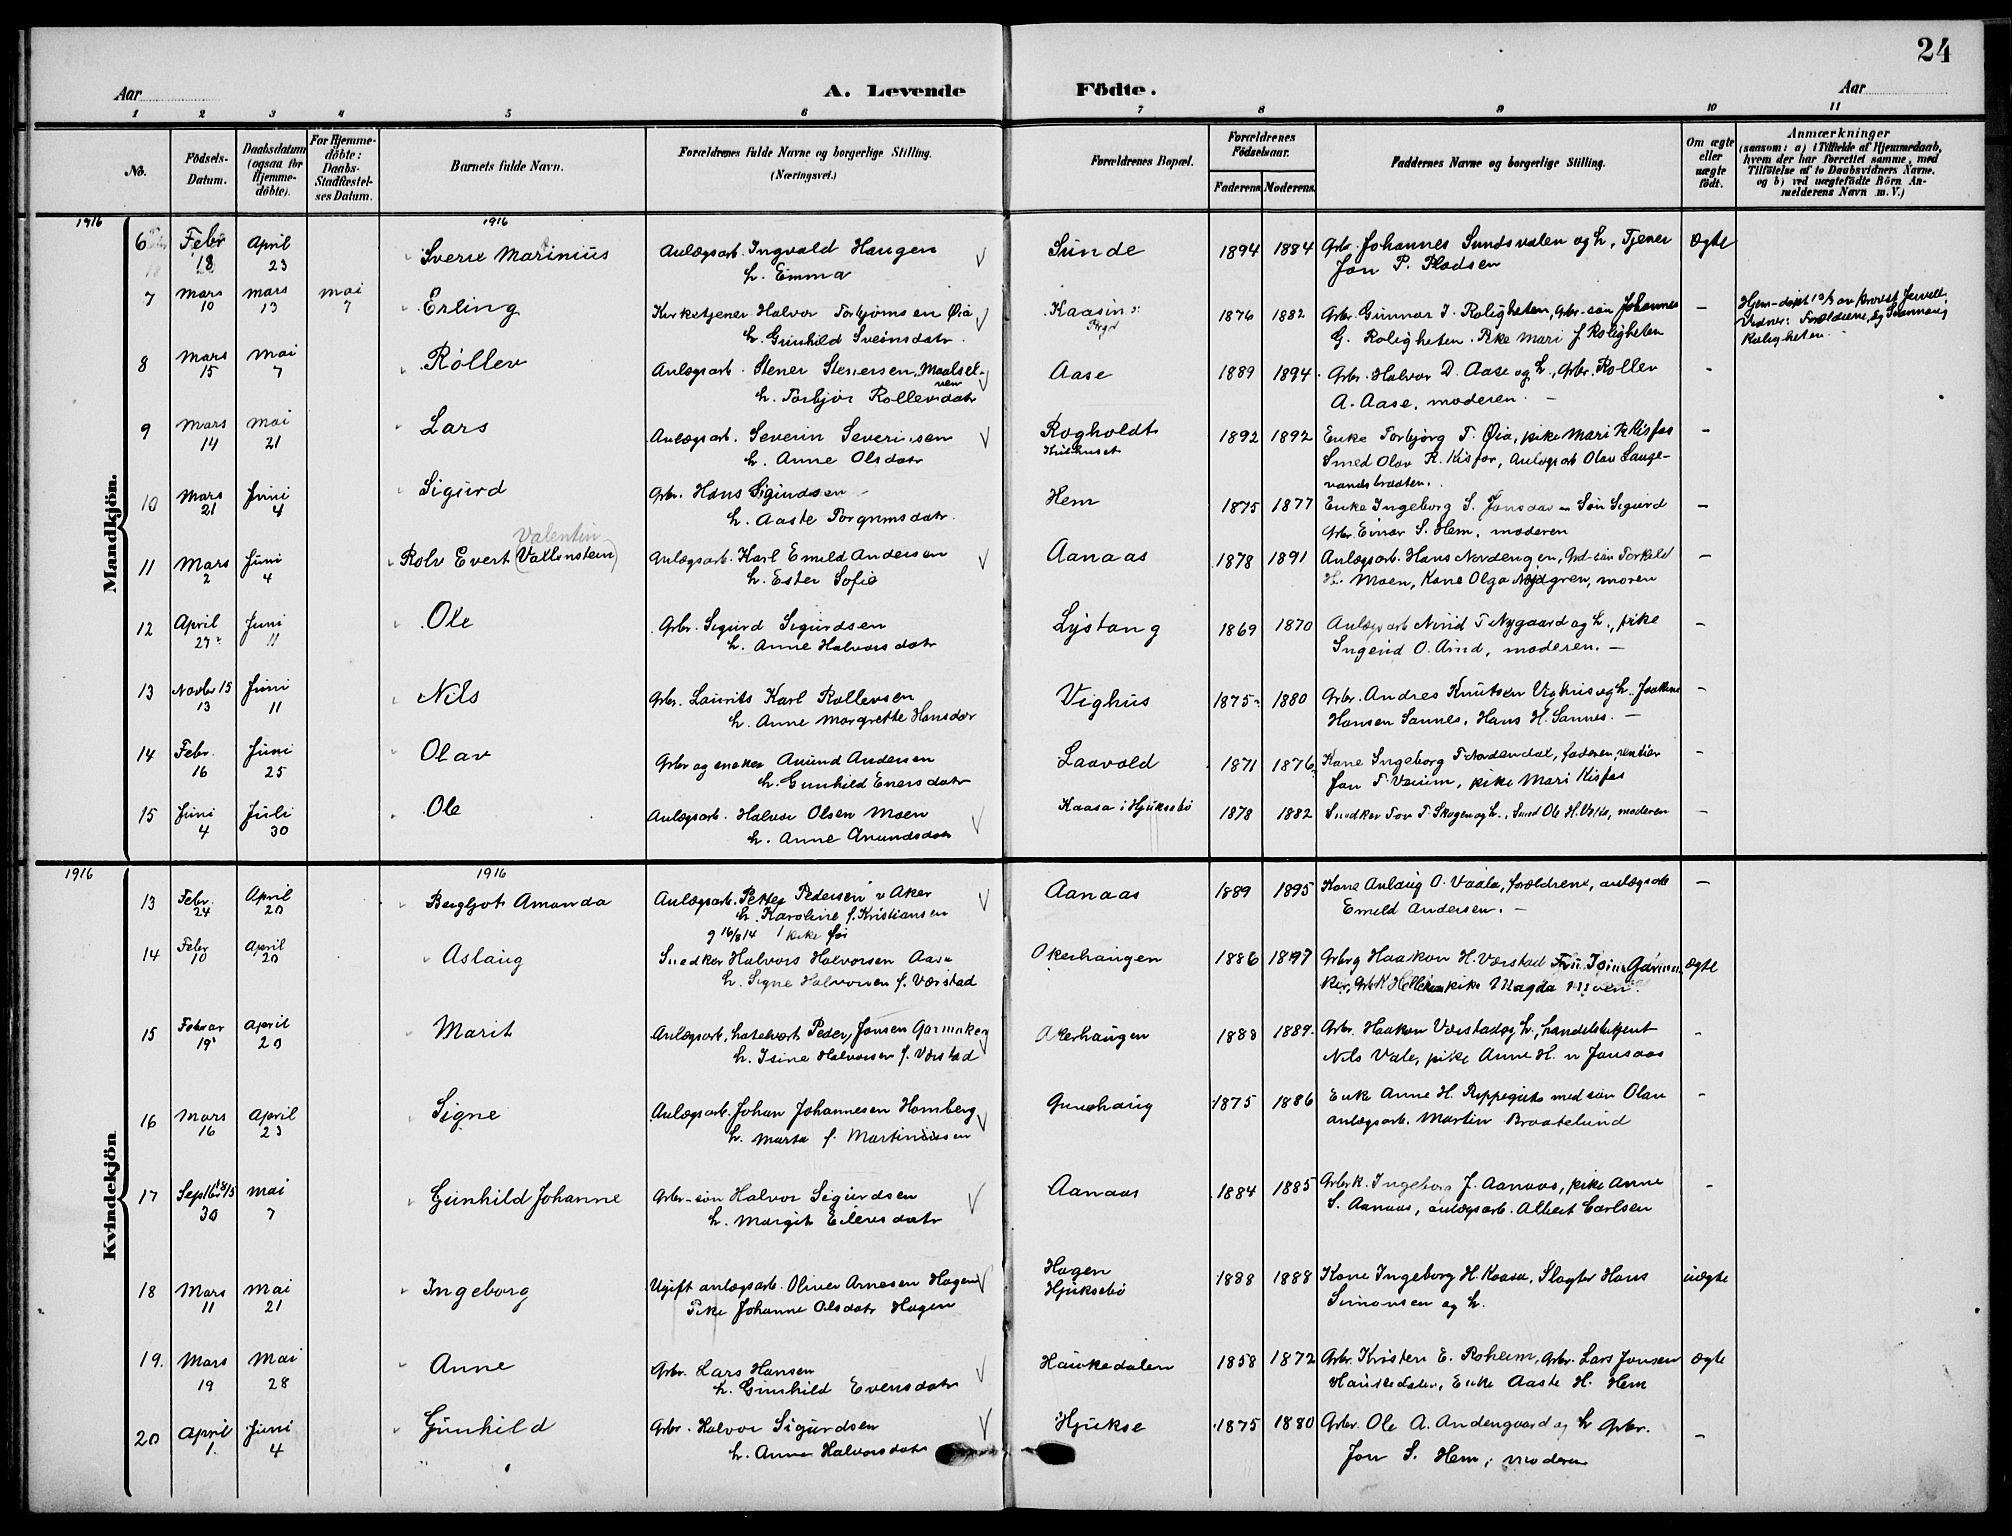 24
Aar
A. Levende Födte.
Aar
1 2 3 4 5 6 7 8 9 10 11
No. Födsels-Datum. Daabsdatum (ogsaa for Hjemme-döbte). For Hjemme-döbte: Daabs-Stadfæstel-ses Datum. Barnets fulde Navn. Forældrenes fulde Navne og borgerlige Stilling. (Næringsvei.) Forældrenes Bopæl. Forældrenes Födselsaar. Faderens. Moderens. Faddernes Navne og borgerlige Stilling. Om ægte eller uægte födt. Anmærkninger (saasom: a) i Tilfælde af Hjemmedaab, hvem der har forrettet samme, med Tilföielse af to Daabsvidners Navne, og b) ved uægtefödte Börn An-melderens Navn m. V.)
1916 1916
Mandkjön.
6 Febr 18 April 23 Sverre Marinius Anlægsarb. Ingvald Haugen Sunde 1894 1884 Grbr. Johannes Sundsvalen og h., Tjener ægte
h. Emma Jon P. Pladsen
7 Mars 10 Mars 13 Mai 7 Erling Kirketjener Halvor Torbjørnsen Øia Kaasin 1876 1882 Grbr. Gunnar I. Roligheten, Grbr.-søn Johannes —
h. Gunhild Sveinsdatr. G. Roligheten. Pike Mari J Roligheten
Hjem-døpt av Provst
Vidner: Forældrene, og
Roligheten
8 Mars 15 Mai 7 Rollev Anlægsarb. Stener Stenersen, Maalsel-ven Aase 1889 1894 Grbr. Halvor D. Aase og h., Grbr. Rollev -
h. Torbjør Rollevsdatr A. Aase, moderen. —
9 Mars 14 Mai 21 Lars Anlægsarb. Severin Severinsen Rogholdt 1892 1892 Enke Torbjørg T. Øia, pike Mari Kisfos -
h. Anne Olsdatr. Smed Olav R. Kisfos, Anlægsarb Olav Lauge-
vandsbraaten.
10 Mars 21 Juni 4 Sigurd Grbr. Hans Sigurdsen Hem 1875 1877 Enke Ingeborg S. Søn Sigurd —
h. Aaste Torgrimsdatr. Grbr. Einar S. Hem, moderen
Valentin
11 Mars 2 Juni 4 Rolv Evert (Vallenstein) Anlægsarb. Karl Emild Andersen Aanaas 1878 1891 Anlægsarb. Hans Nordengen, Torkild —
h. Ester Sofie H. Moen, Kone Olga moren
12 April 27 Juni 11 Ole Grbr. Sigurd Sigurdsen Lystang 1869 1870 Anlægsarb T Nygaard og h., pike —
h. Anne Halvorsdatr O. moderen. —
13 Novbr 15 13 Juni 11 Nils Grbr. Laurits Karl Rollevsen Vighus 1875 1880 Grbr. Andres Knutsen Vighus og h. —
h. Anne Margrethe Hansdtr Hansen Sannes, Hans H. Sannes. —
14 Febr. 16 Juni 25 Olav Grbr og snekker Amund Andersen Laavold 1871 1876 Kone Ingeborg T Nordendal, faderen, —
h. Gunhild Enersdatr Jon T pike Mari Kisfos
15 Juni 4 Juli 30 Ole Anlægsarb. Halvor Olsen Moen Kaasa i Hjuksebö 1878 1882 Snedker Tov T. Skogen og h., Ole H. moderen —
h. Anne Amundsdatr
1916 1916
Kvindekjön
13 Febr. 24 April 20 Bergljot Amanda Anlægsarb. Petter Pedersen v Aker Aanaas 1889 1895 Kone Anlaug O. Vaala, forældrene, anlægsarb —
h. Karoline f. Kristiansen Emild Andersen. —
g 16/8 14 1 pike før
14 Febr 10 April 20 Aslaug Snedker Halvor Halvorsen Aasa Okerhaugen 1886 1897 Grbr Haakon H. Værstad ægte
h. Signe Halvorsen f. Værstad pike Magda Moen.
15 Februar 19 April 20 Marit Anlægsark, Peder Jonsen Garmaker Akerhaugen 1888 1889 Grbr. Haakon Værstad og h., handelsbetjent -
h. Isine Halvorsen f. Værstad Nils Vale, pike Anne H. Jonsaas
16 Mars 16 April 23 Signe Anlægsarb. Johan Johannesen Homberg Grunshaug 1875 1886 Enke Anne H. med søn Olav -
h. Marta f. Martiniusen anlægsarb. Martin Braatelund
17 Septbr 15 30 Mai 7 Gunhild Johanne Grbr-søn Halvor Sigurdsen Aanaas 1884 1885 Grbrk. Ingeborg J. Aanaas, pike Anne -
h. Margit Eilevsdatr S. Aanaas, anlægsarb. Albert Carlsen
18 Mars 11 Mai 21 Ingeborg Ugift anlægsarb. Oliver Arnesen Hagen Hagen Hjuksebö 1888 1888 Kone Ingeborg H. Kaasa, Slagter Hans uægte
Pike Johanne Olsdatr Hagen Simonsen og h.
19. Mars 19 Mai 28 Anne Grbr. Lars Hansen Haukedalen 1858 1872 Grbr. Kristen E. Roheim, Grbr. Lars Jonsen ægte
h. Gunhild Evensdatr Haukedalen, Enke Aaste H. Hem
20 April 1. Juni 4 Gunhild Grbr. Halvor Sigurdsen Hjukse 1875 1880 Grbr. Ole A. Andengaard og h Grbr. —
h. Anne Halvorsdatr Jon S. Hem, moderen